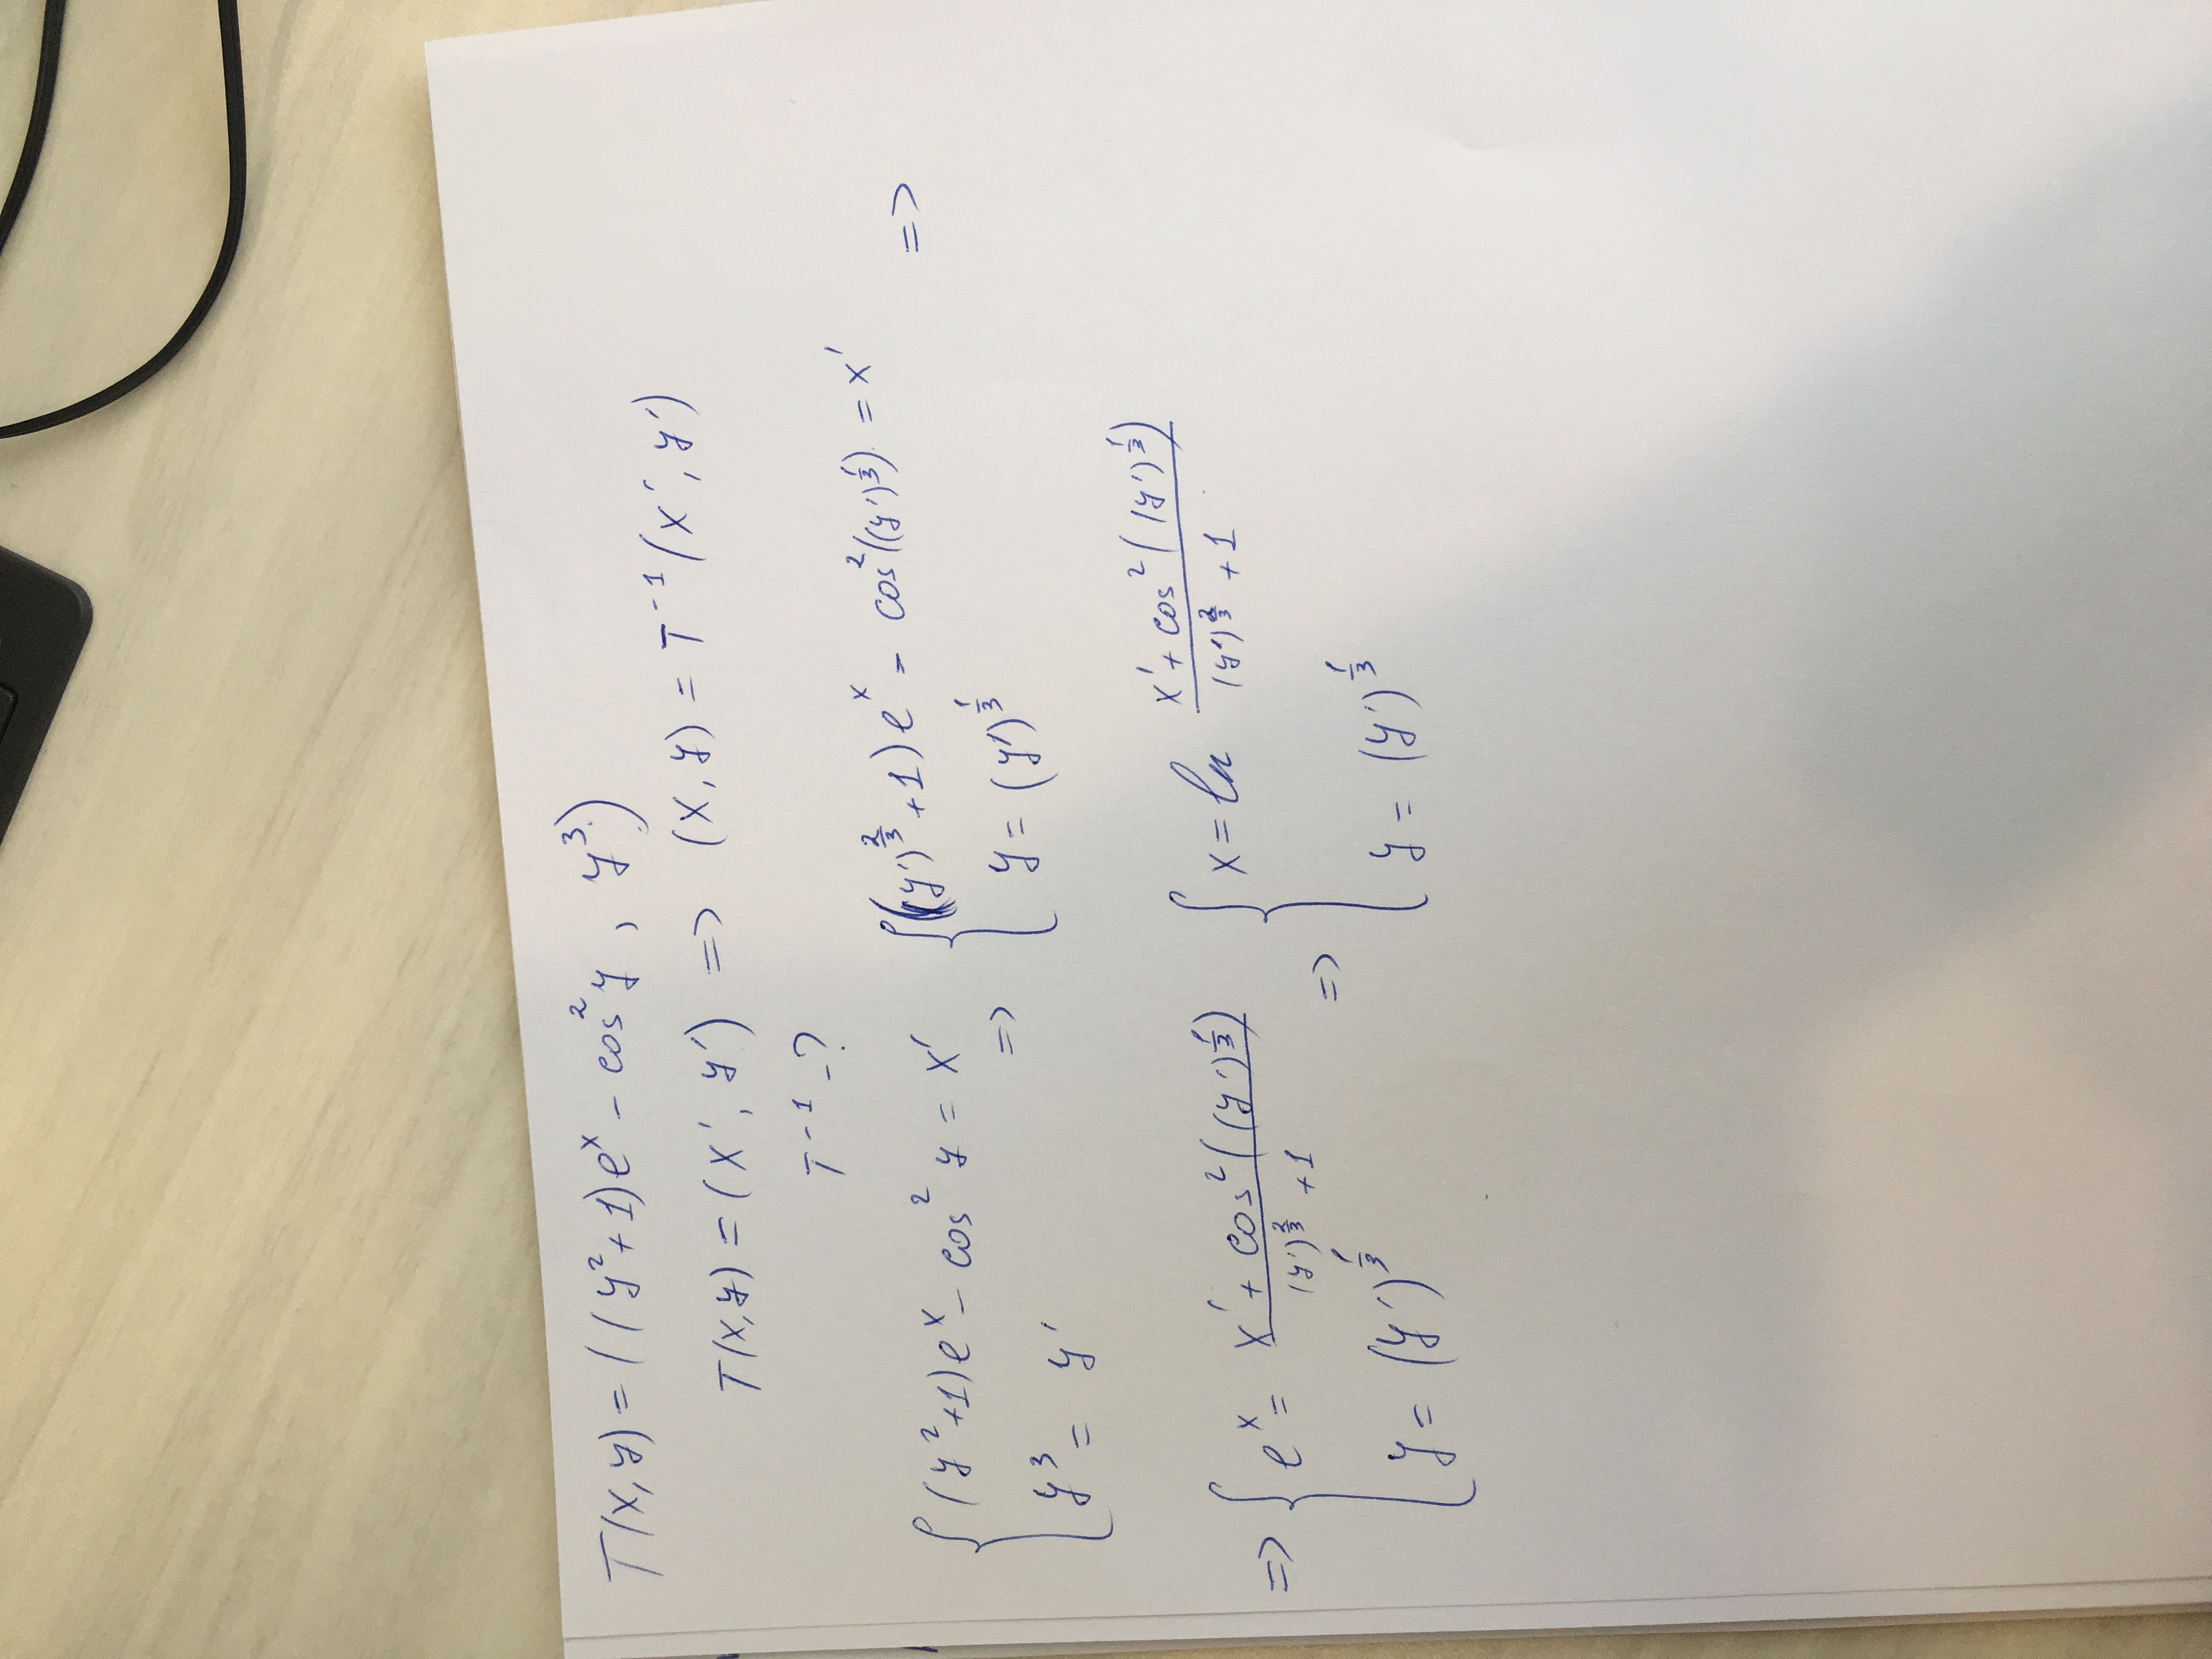 T(x,y) = ((y²+1)eˣ - cos²y , y³)
T(x,y) = (x', y') => (x, y) = T⁻¹(x', y')
T⁻¹ - ?
{ (y²+1)eˣ - cos² y = x' => { ((y')^(2/3) + 1)eˣ - cos²((y')^(1/3)) = x' =>
y³ = y' y = (y')^(1/3)
=> { eˣ = (x' + cos²((y')^(1/3))) / ((y')^(2/3) + 1) => { x = ln (x' + cos²((y')^(1/3))) / ((y')^(2/3) + 1)
y = (y')^(1/3) y = (y')^(1/3)